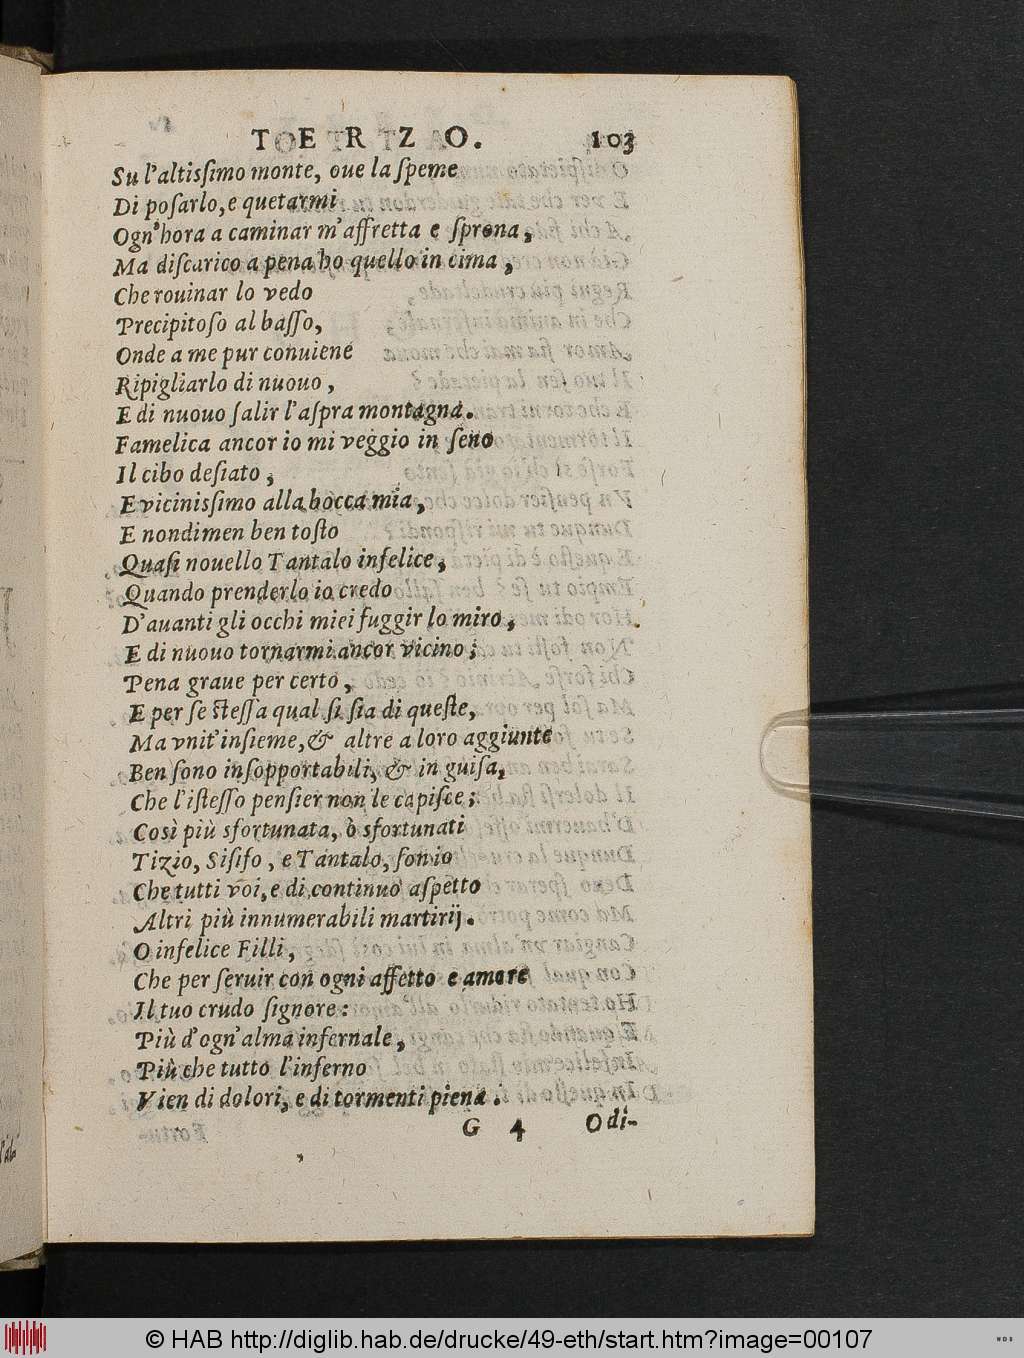 TERZO. 103
Su l'altiſsimo monte, oue la ſpeme
Di poſarlo, e quetarmi
Ogn'hora a caminar m'affretta e ſprona,
Ma diſcarico a pena ho quello in cima,
Che rouinar lo vedo
Precipitoſo al baſſo,
Onde a me pur conuiene
Ripigliarlo di nuouo,
E di nuouo ſalir l'aſpra montagna.
Famelica ancor io mi veggio in ſeno
Il cibo deſiato;
E viciniſsimo alla bocca mia,
E nondimen ben toſto
Quaſi nouello Tantalo infelice,
Quando prenderlo io credo
D'auanti gli occhi miei fuggir lo miro,
E di nuouo tornarmi ancor vicino;
Pena graue per certo,
E per ſe ſteſſa qual ſi ſia di queſte,
Ma vnit'inſieme, & altre a loro aggiunte
Ben ſono inſopportabili, & in guiſa,
Che l'iſteſſo penſier non le capiſce;
Così più sfortunata, ò sfortunati
Tizio, Siſifo, e Tantalo, ſon io
Che tutti voi, e di continuo aſpetto
Altri più innumerabili martirij.
O infelice Filli,
Che per ſeruir con ogni affetto e amore
Il tuo crudo ſignore:
Più d'ogn'alma infernale,
Più che tutto l'inferno
Vien di dolori, e di tormenti piena.
G 4 Odi-
© HAB http://diglib.hab.de/drucke/49-eth/start.htm?image=00107